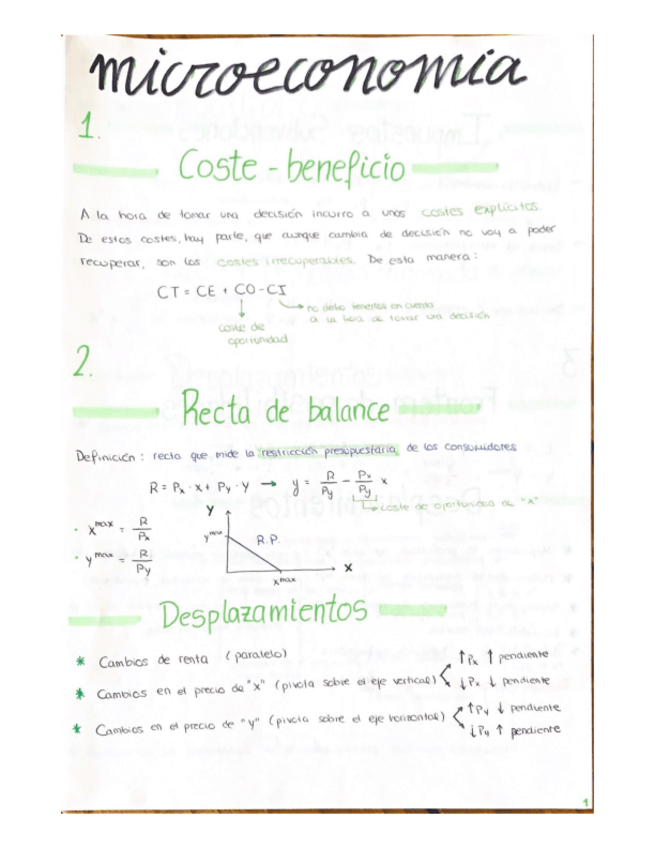 microeconomía
1.
Coste - beneficio
A la hora de tomar una decisión incurro a unos costes explícitos.
De estos costes, hay parte, que aunque cambia de decisión no voy a poder
recuperar, son los costes irrecuperables. De esta manera:
CT = CE + CO - CI
no debo tenerlos en cuenta
a la hora de tomar una decisión
coste de
oportunidad
2.
Recta de balance
Definición: recta que mide la restricción presupuestaria de los consumidores
R = Px · x + Py · Y → y = R/Py - Px/Py x
coste de oportunidad de "x"
· x max = R/Px
· y max = R/Py
Y
y max
R.P.
X
x max
Desplazamientos
* Cambios de renta (paralelo)
* Cambios en el precio de "x" (pivota sobre el eje vertical)
↑Px ↑ pendiente
↓Px ↓ pendiente
* Cambios en el precio de "y" (pivota sobre el eje horizontal)
↑Py ↓ pendiente
↓Py ↑ pendiente
1